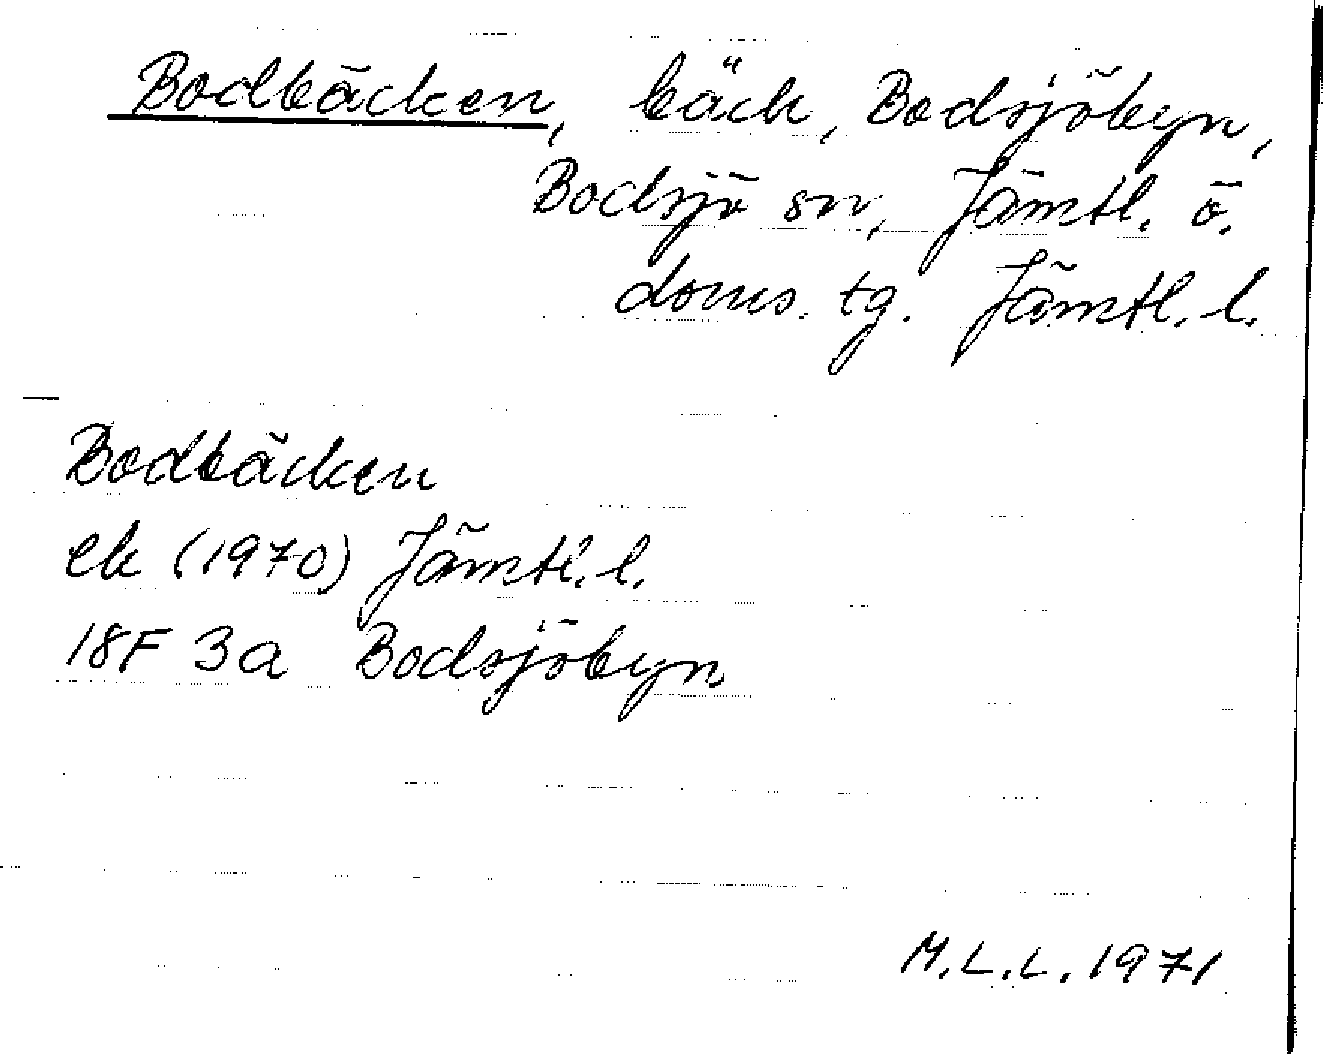 Bodbäcken, bäck, Bodsjöbyn,
Bodsjö sn, Jämtl. ö.
doms. tg. Jämtl. l.
Bodbäcken
ek (1970) Jämtl. l.
18F 3a Bodsjöbyn
M.L.L. 1971